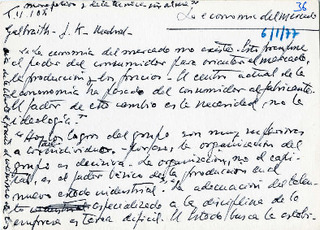 36
La economía del mercado
6/1/77
Galbraith, J. K. Madrid
"La economía del mercado no existe. Esta presume
el poder del consumidor para orientar el mercado,
la producción y los precios. El centro actual de la
economía ha pasado del consumidor al fabricante.
El factor de este cambio es la necesidad, no la
ideología."
"Los logros del grupo son muy superiores
a los individuos, porque la organización del
grupo es decisiva. La organización, no el capi-
tal, es el factor básico de la producción en el
nuevo estado industrial. La adecuación del talen-
to especializado a la disciplina de la
empresa es tarea difícil. El Estado busca la estabi-